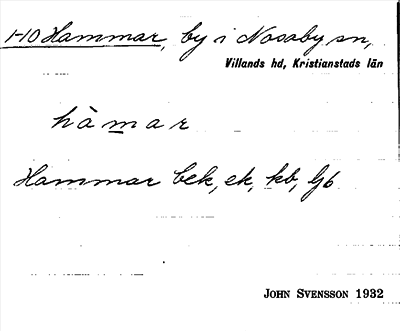 1-10 Hammar, by i Nosaby sn,
Villands hd, Kristianstads län
hàmar
Hammar bek, ek, kb, Gb
JOHN SVENSSON 1932